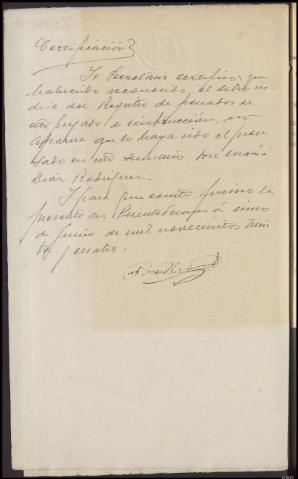 Certificación
Yo Secretario certifico: que
habiendo reconocido el libro in-
dice del Registro de penados de
este Juzgado e instrucción, no
aparece que lo haya sido el proce-
sado en este sumario Don
Diaz Rodriguez.
Y para que conste firmo la
presente en a cinco
de Junio de mil novecientos trein
ta y cuatro.